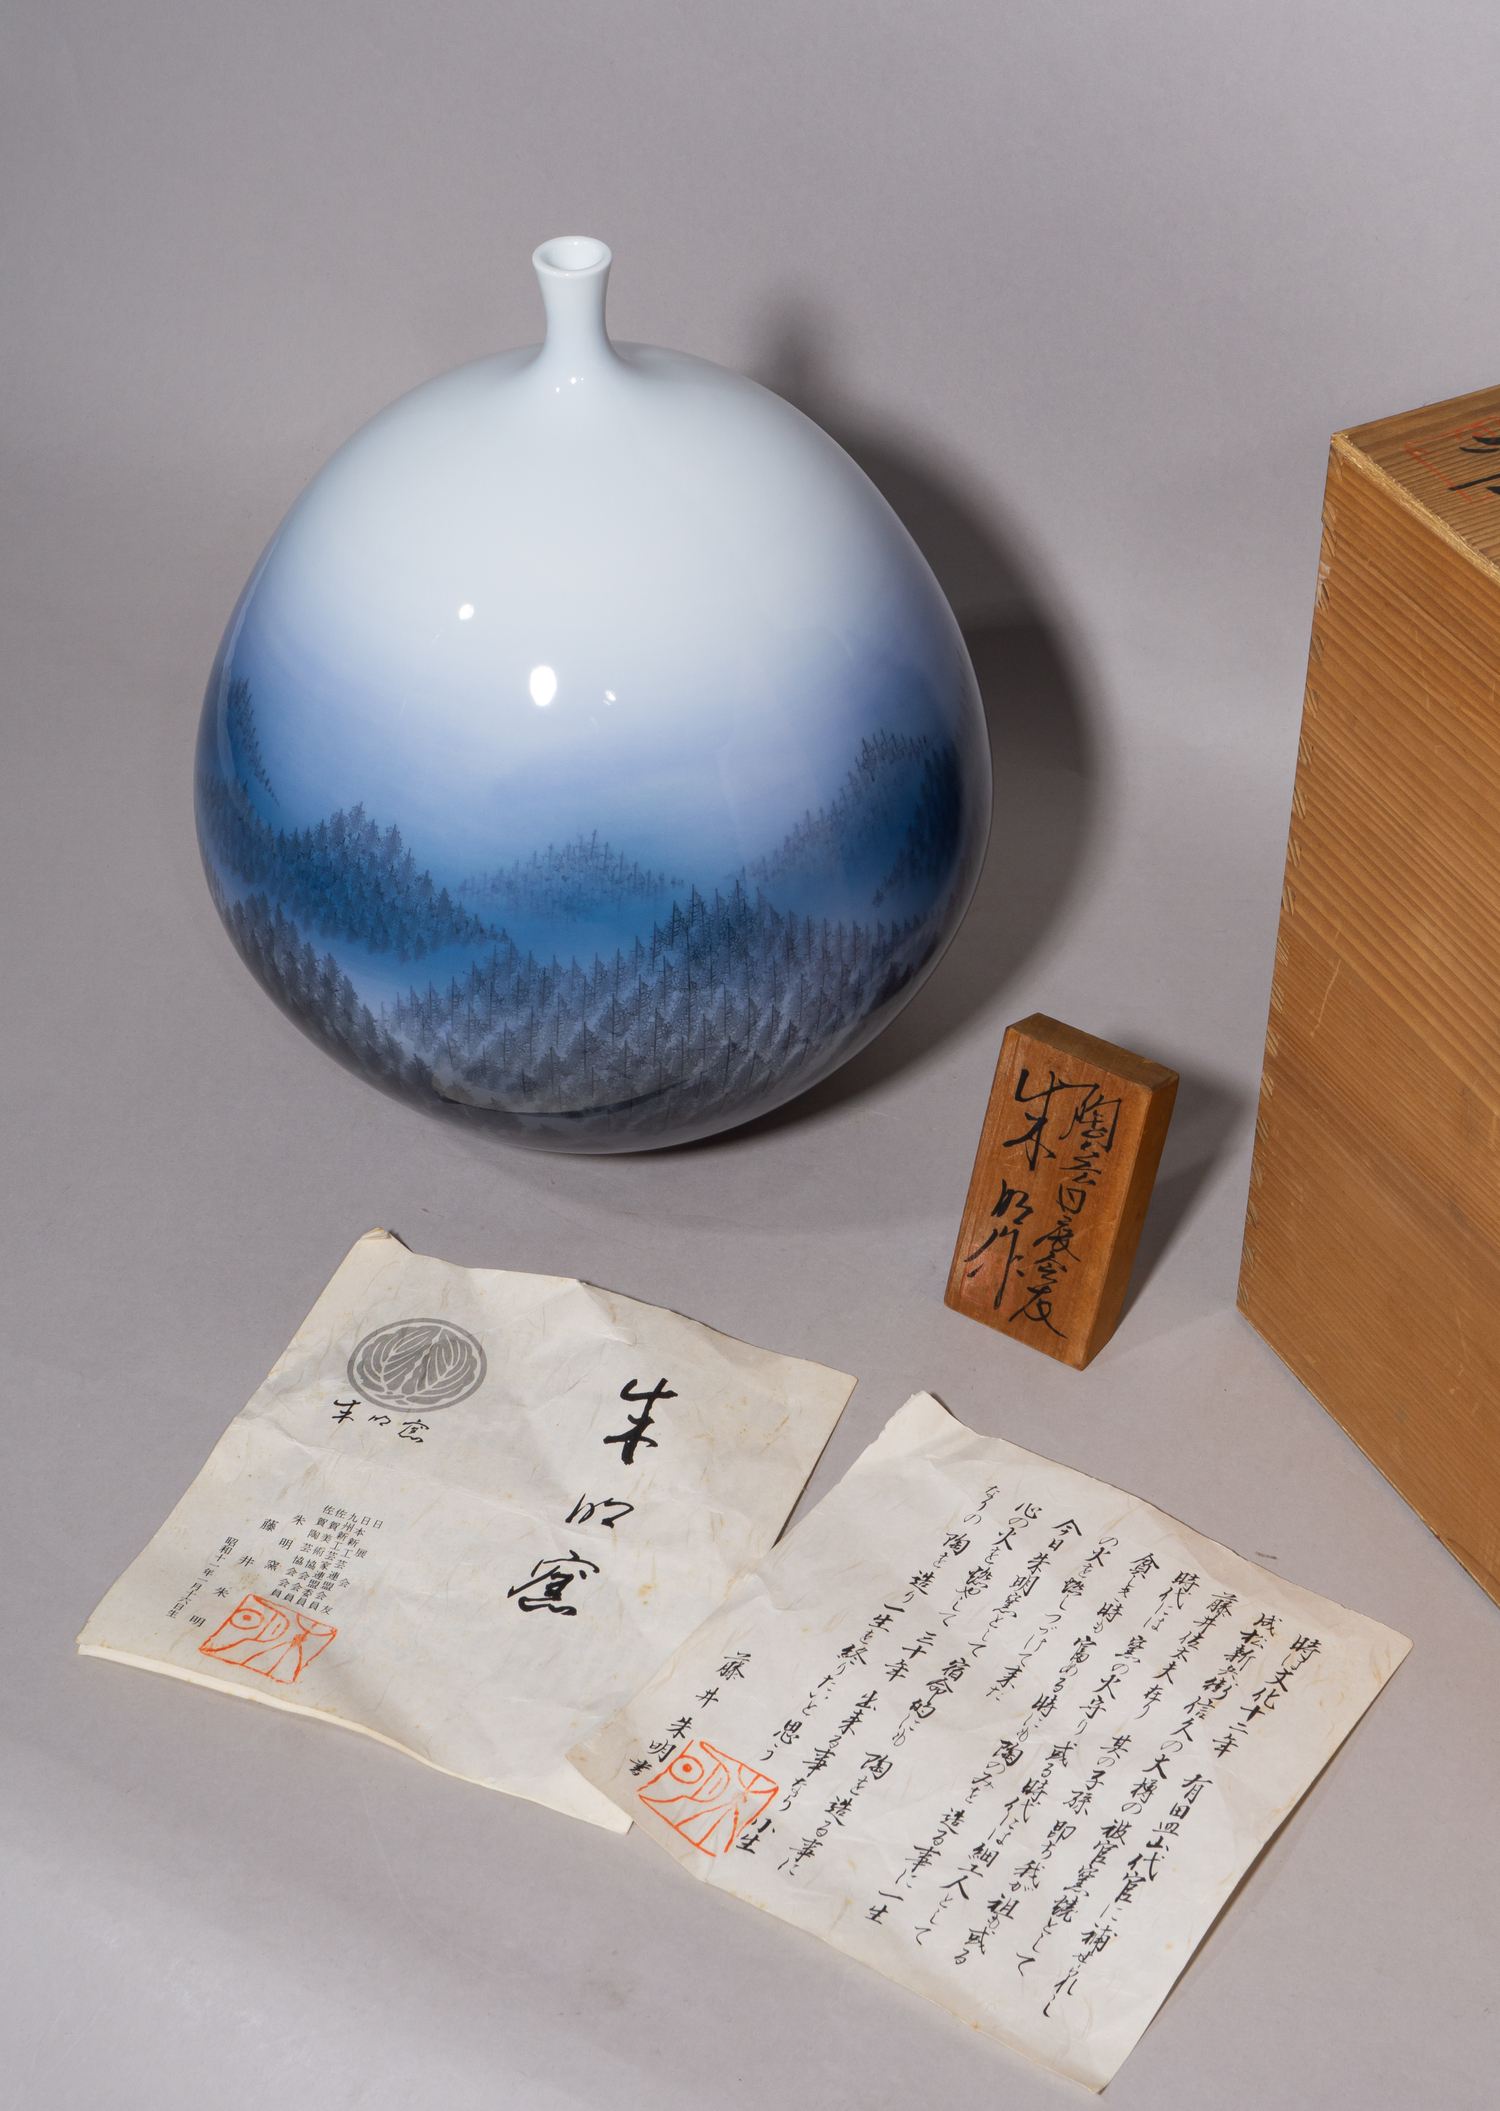 陶芸日展会友
朱明作
朱明窯
朱明窯
日展会友
日本新工芸家連盟会員
九州新工芸連盟委員
佐賀美術協会会員
佐賀陶芸協会会員
朱明窯
藤井朱明
昭和十一年一月十六日生
時は文化十二年 有田皿山代官に補せられし
成松新兵衛信久の大樽の被官窯焼として
藤井佐太夫在り 其の子孫 即ち我が祖が或る
時代には 窯の火守り 或る時代には細工人として
貧しき時も 富める時にも 陶のみを 造る事に一生
の火を燃しつづけて来た
今日朱明窯として 宿命的にも 陶を造る事に
心の火を燃やして 三十年 出来る事なり 小生
なりの 陶を造り 一生を終りたいと思う
藤井朱明書